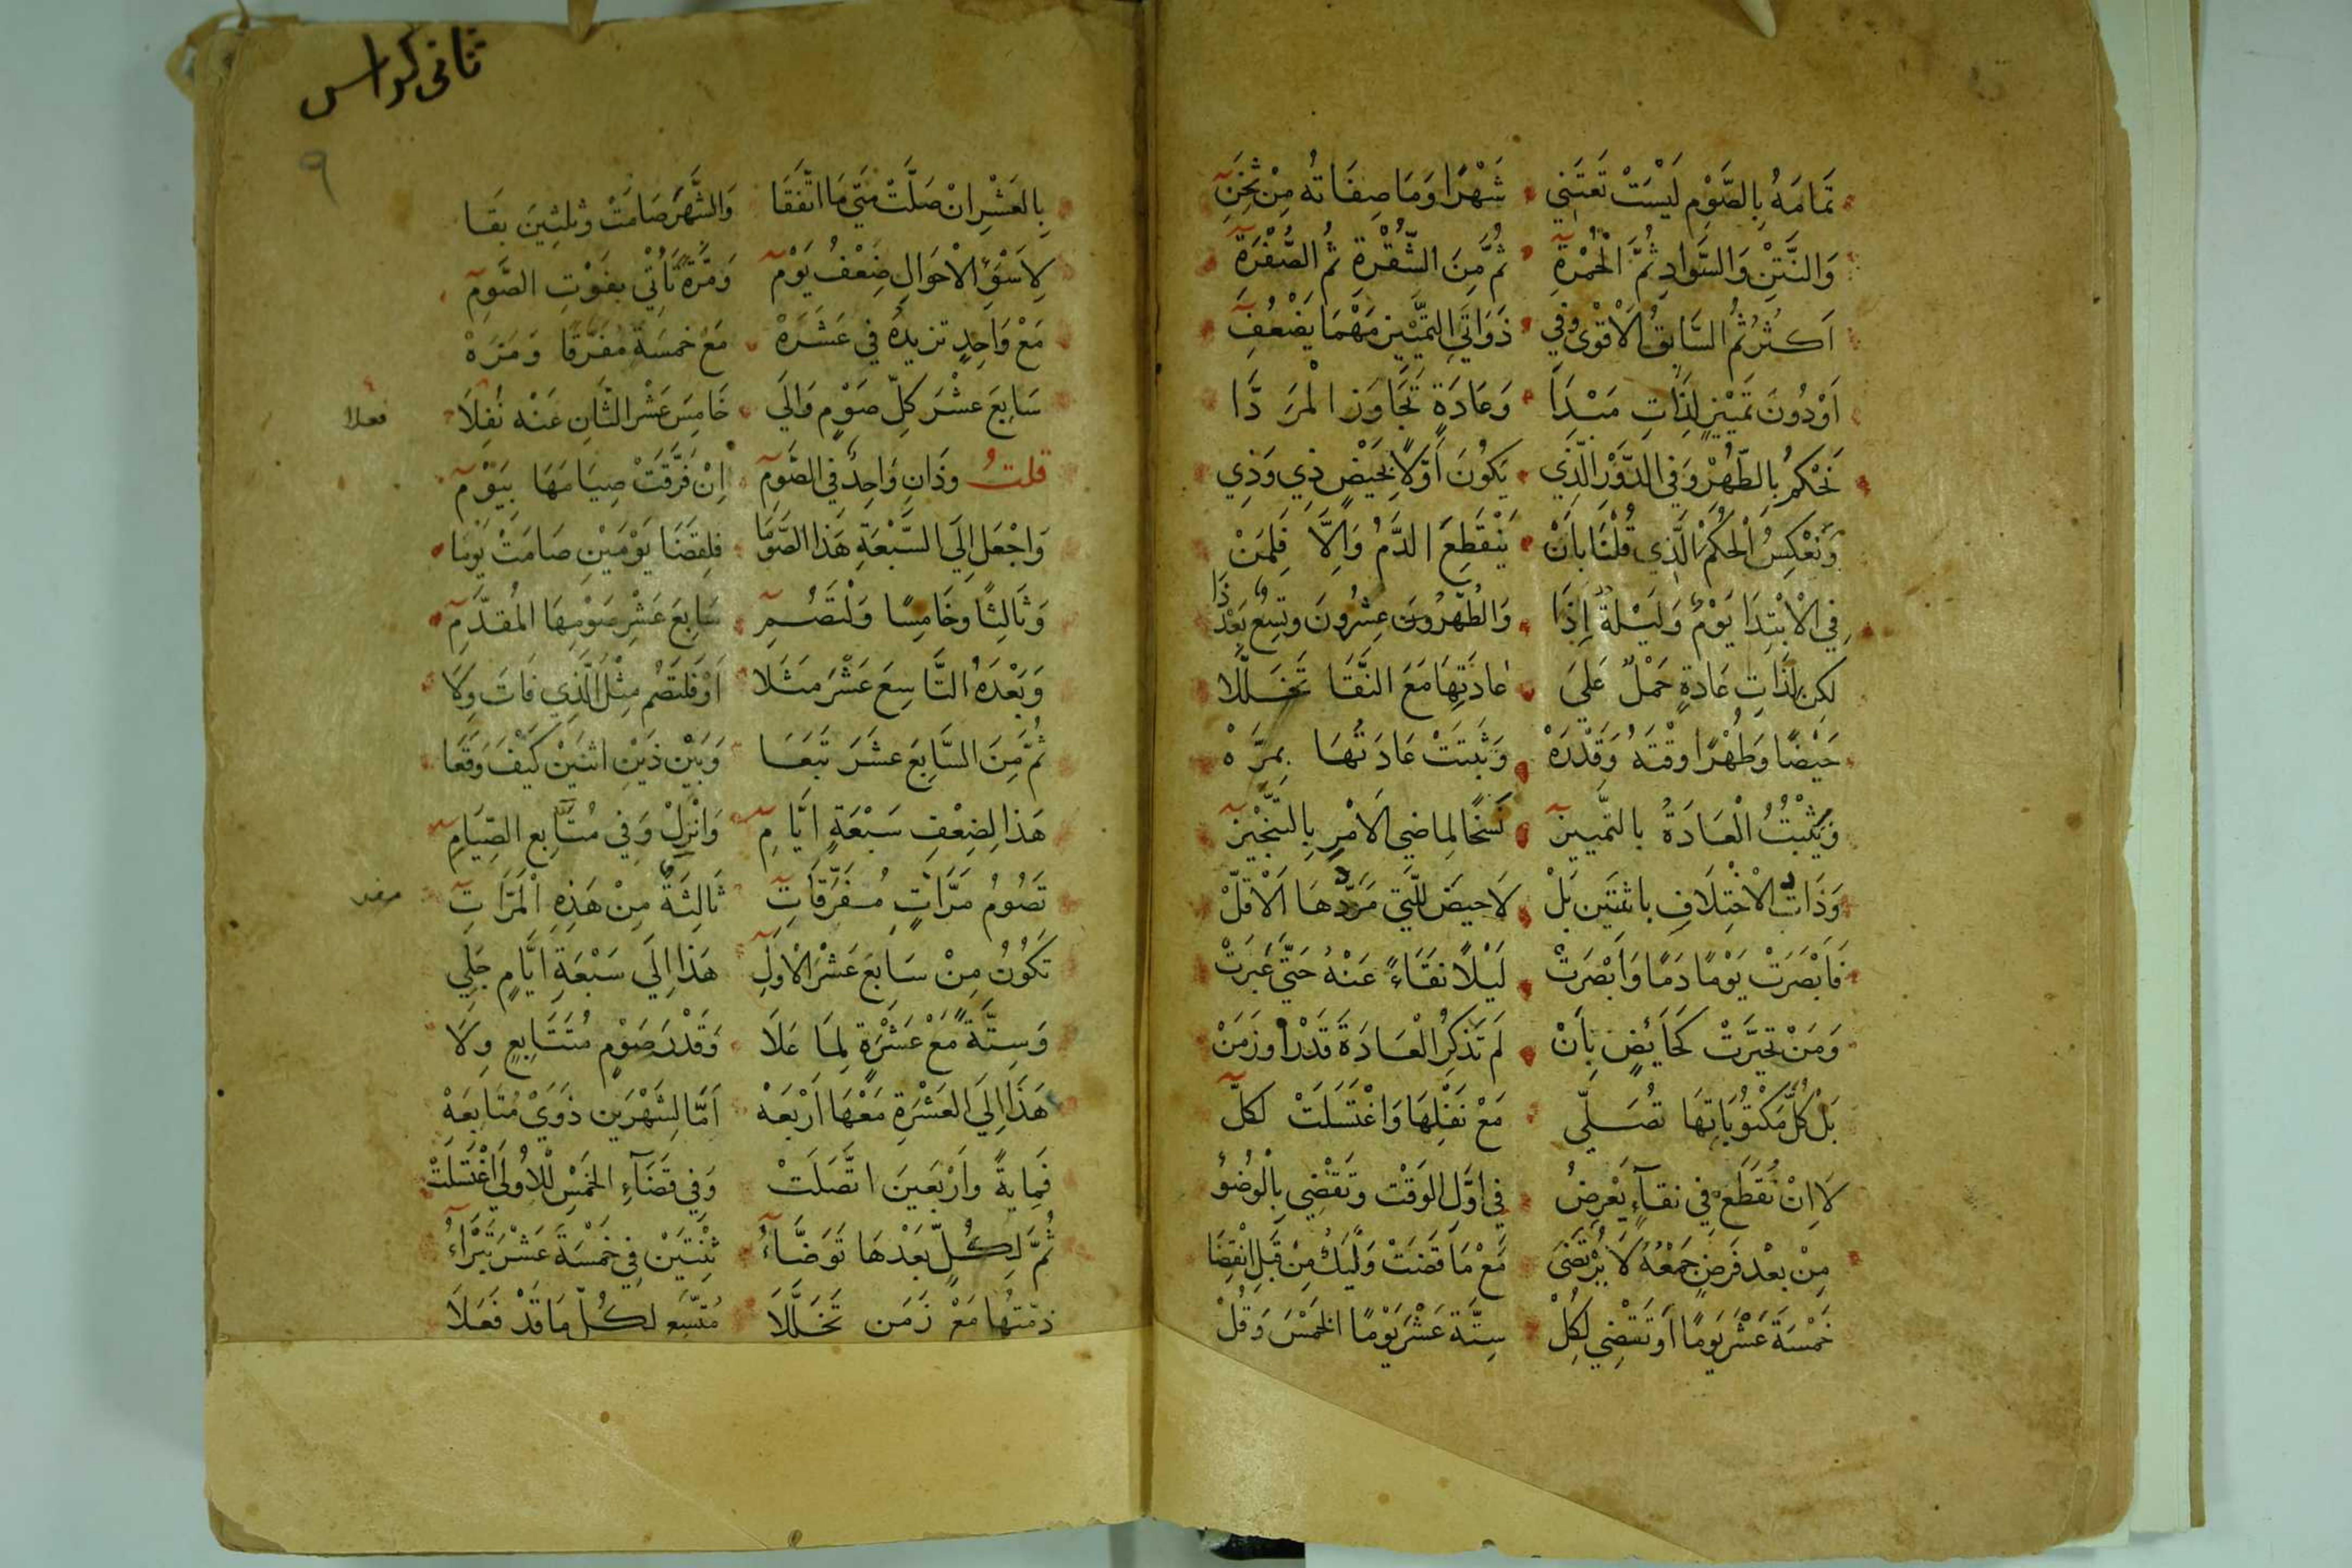 تَمَامَهُ بِالصَّوْمِ لَيْسَتْ تَعْتَنِي شَهْرًا وَمَا صِفَاتُه مِنْ ثِخَنِ
وَالنَّتِنْ وَالسَّوَادِ ثُمَّ الْحُمْرَةِ ثُمَّ مِنَ الشُّقْرَةِ ثُمَّ الصُّفْرَةِ
اَكثَرُ ثُمَّ السَّابِقُ الْاَقْوَى وَفِي ذَوَاتِي التَّمْيِيزِ مَهْمَا يَضْعُفِ
اَوْ دُونَ تَمْيِيزٍ لِذَاتِ مَبْدَا وَعَادَةٍ تَجَاوَزَ الْمَرَدَّا
نَحْكُمُ بِالطُّهْرِ وَفِي الدَّوْرِ الَّذِي يَكُونُ اَوَّلًا بِحَيْضِ ذِي وَذِي
وَنَعْكِسُ الْحُكْمَ الَّذِي قُلْنَا بِأَنْ يَنْقَطِعَ الدَّمُ وَاِلَّا فَلِمَنْ
فِي الْاِبْتِدَا يَوْمٌ وَلَيْلَةٌ إِذَا وَالطُّهْرُ عِشْرُونَ وَتِسْعٌ بَعْدَ ذَا
لكِنْ لِذَاتِ عَادَةٍ حَمْلٌ عَلَى عَادَتِهَا مَعَ النَّقَا تَخَلَّلَا
حَيْضًا وَطُهْرًا وقْتَهُ وَقَدْرَهْ وَثَبَتَتْ عَادَتُهَا بِمَرَّهْ
وَيَثْبُتُ الْعَادَةُ بالتَّمييزِ نَسْخًا لِماضي الاَمْرِ بِالتَّنْجِيْزِ
وَذَاتُ الْاخْتِلَافِ باثنَتَين بَلْ لَا حيضَ للَّتِي مَرَدُّهَا الْاَقَلّْ
فَاَبْصَرَتْ يَوْمًا دَمًا وَاَبْصَرَتْ لَيْلًا نَقَاءً عَنْهُ حَتَّى عَبَرَتْ
وَمَنْ تَحَيَّرَتْ كَحَايِضٍ بِاَنْ لَمْ تَذْكُرِ الْعَادَةَ قَدْرًا وَزَمَنْ
بَلْ كُلَّ مَكْتُوْبَاتِهَا تُصَلِّي مَعْ نَفْلِهَا وَاغْتَسَلَتْ لكلِّ
لَا اِنْ تُقَطِّعْ فِي نقآءٍ يَعْرِضُ فِي اوَّلِ الوَقْتْ وَتَقْضِي بِالْوضُوْ
مِنْ بعْدِ فَرضٍ جَمْعُهُ لَا يُرْتَضَى مَعْ مَا قَضَتْ وَلْيَكُ مِنْ قَبلِ انْقِضَا
خَمْسَةَ عَشْرَ يَومًا اَوْ تَقْضِي لِكُلْ سِتَّةَ عَشْرَ يَوْمًا الخَمْسَ وَقُلْ
ثانى كراس
٩
بِالعَشْرِ اِنْ صَلَّتْ مَتَى مَا اتَّفَقَا وَالشَّهْرَ صَامَتْ وَثلثِينَ بَقَا
لِاَسْوَءِ الاَحْوَالِ ضِعْفُ يَوْمِ وَمَرَّةً تَأْتِي بِفَوْتِ الصَّوْمِ
مَعْ وَاحِدٍ تزيدُهُ فِي عَشَرَهْ مَعْ خمْسَةٍ مُفَرَّقًا وَمَرَهْ
سَابِعَ عَشْرَ كلِّ صَوْمٍ وَالَى خَامِسَ عَشْرِ الثَّانِ عَنْه نُفِلَا فعلا
قلتُ وذَانِ وَاحِدٌ فِي الصَّوْمِ اِنْ فَرَّقَتْ صِيَامَهَا بِيَوْمِ
وَاجْعَلْ اِلَى السَّبْعَةِ هَذا الصَّوْمَا فلِقضَا يَوْمَيْنِ صَامَتْ يَوْمَا
وَثَالِثًا وخَامِسًا وَلْتَصُمِ سَابِعَ عَشْرِ صَوْمِهَا الْمُقدَّمِ
وَبَعْدَهُ التَّاسِعَ عَشْرَ مَثَلَا اَوْ فلتَصُم مِثْلَ الَّذِي فَاتَ وِلَا
ثُمَّ مِنَ السَّابِعَ عَشَرَ تَبَعَا وَبَيْنَ ذَيْنِ اثنَيْن كَيْفَ وَقَعَا
هَذا لِضِعْفِ سَبْعَةٍ ايَّامِ وَانْزِلْ وَفِي مُتَابِعِ الصِّيَامِ
تَصُومُ مَرَّاتٍ مُفَرَّقَاتِ ثَالِثَةٌ مِنْ هَذِهِ الْمَرَّاتِ
تَكُوْنُ مِنْ سَابِعَ عَشْرَ الْاَوَّلِ هَذا اِلَى سَبْعَةِ ايَّامٍ جَلِي
وَسِتَّةً مَعْ عَشْرَةٍ لِمَا عَلَا وَقَدْرَ صَوْمٍ مُتَتَابِعٍ وِلَا
هَذَا اِلَى العَشْرَةِ مَعْهَا اَرْبَعَهْ اَمَّا لِشَهْرَيْنِ ذوَيْ مُتَابعَهْ
فَمِايةً وَاَرْبَعينَ اتَّصَلَتْ وَفِي قضَآءِ الخَمْسِ لْلاُولَى اغْتَسَلَتْ
ثُمَّ لِكُلٍّ بَعْدَهَا تَوَضَّأُ ثِنْتَيْنِ فِي خَمْسَةَ عَشْرَ تَبْرَأُ
ذمّتُهَا مَعْ زَمَن تَخَلَّلَا مُتَّسَعٍ لكُلِّ مَا قَدْ فَعَلَا